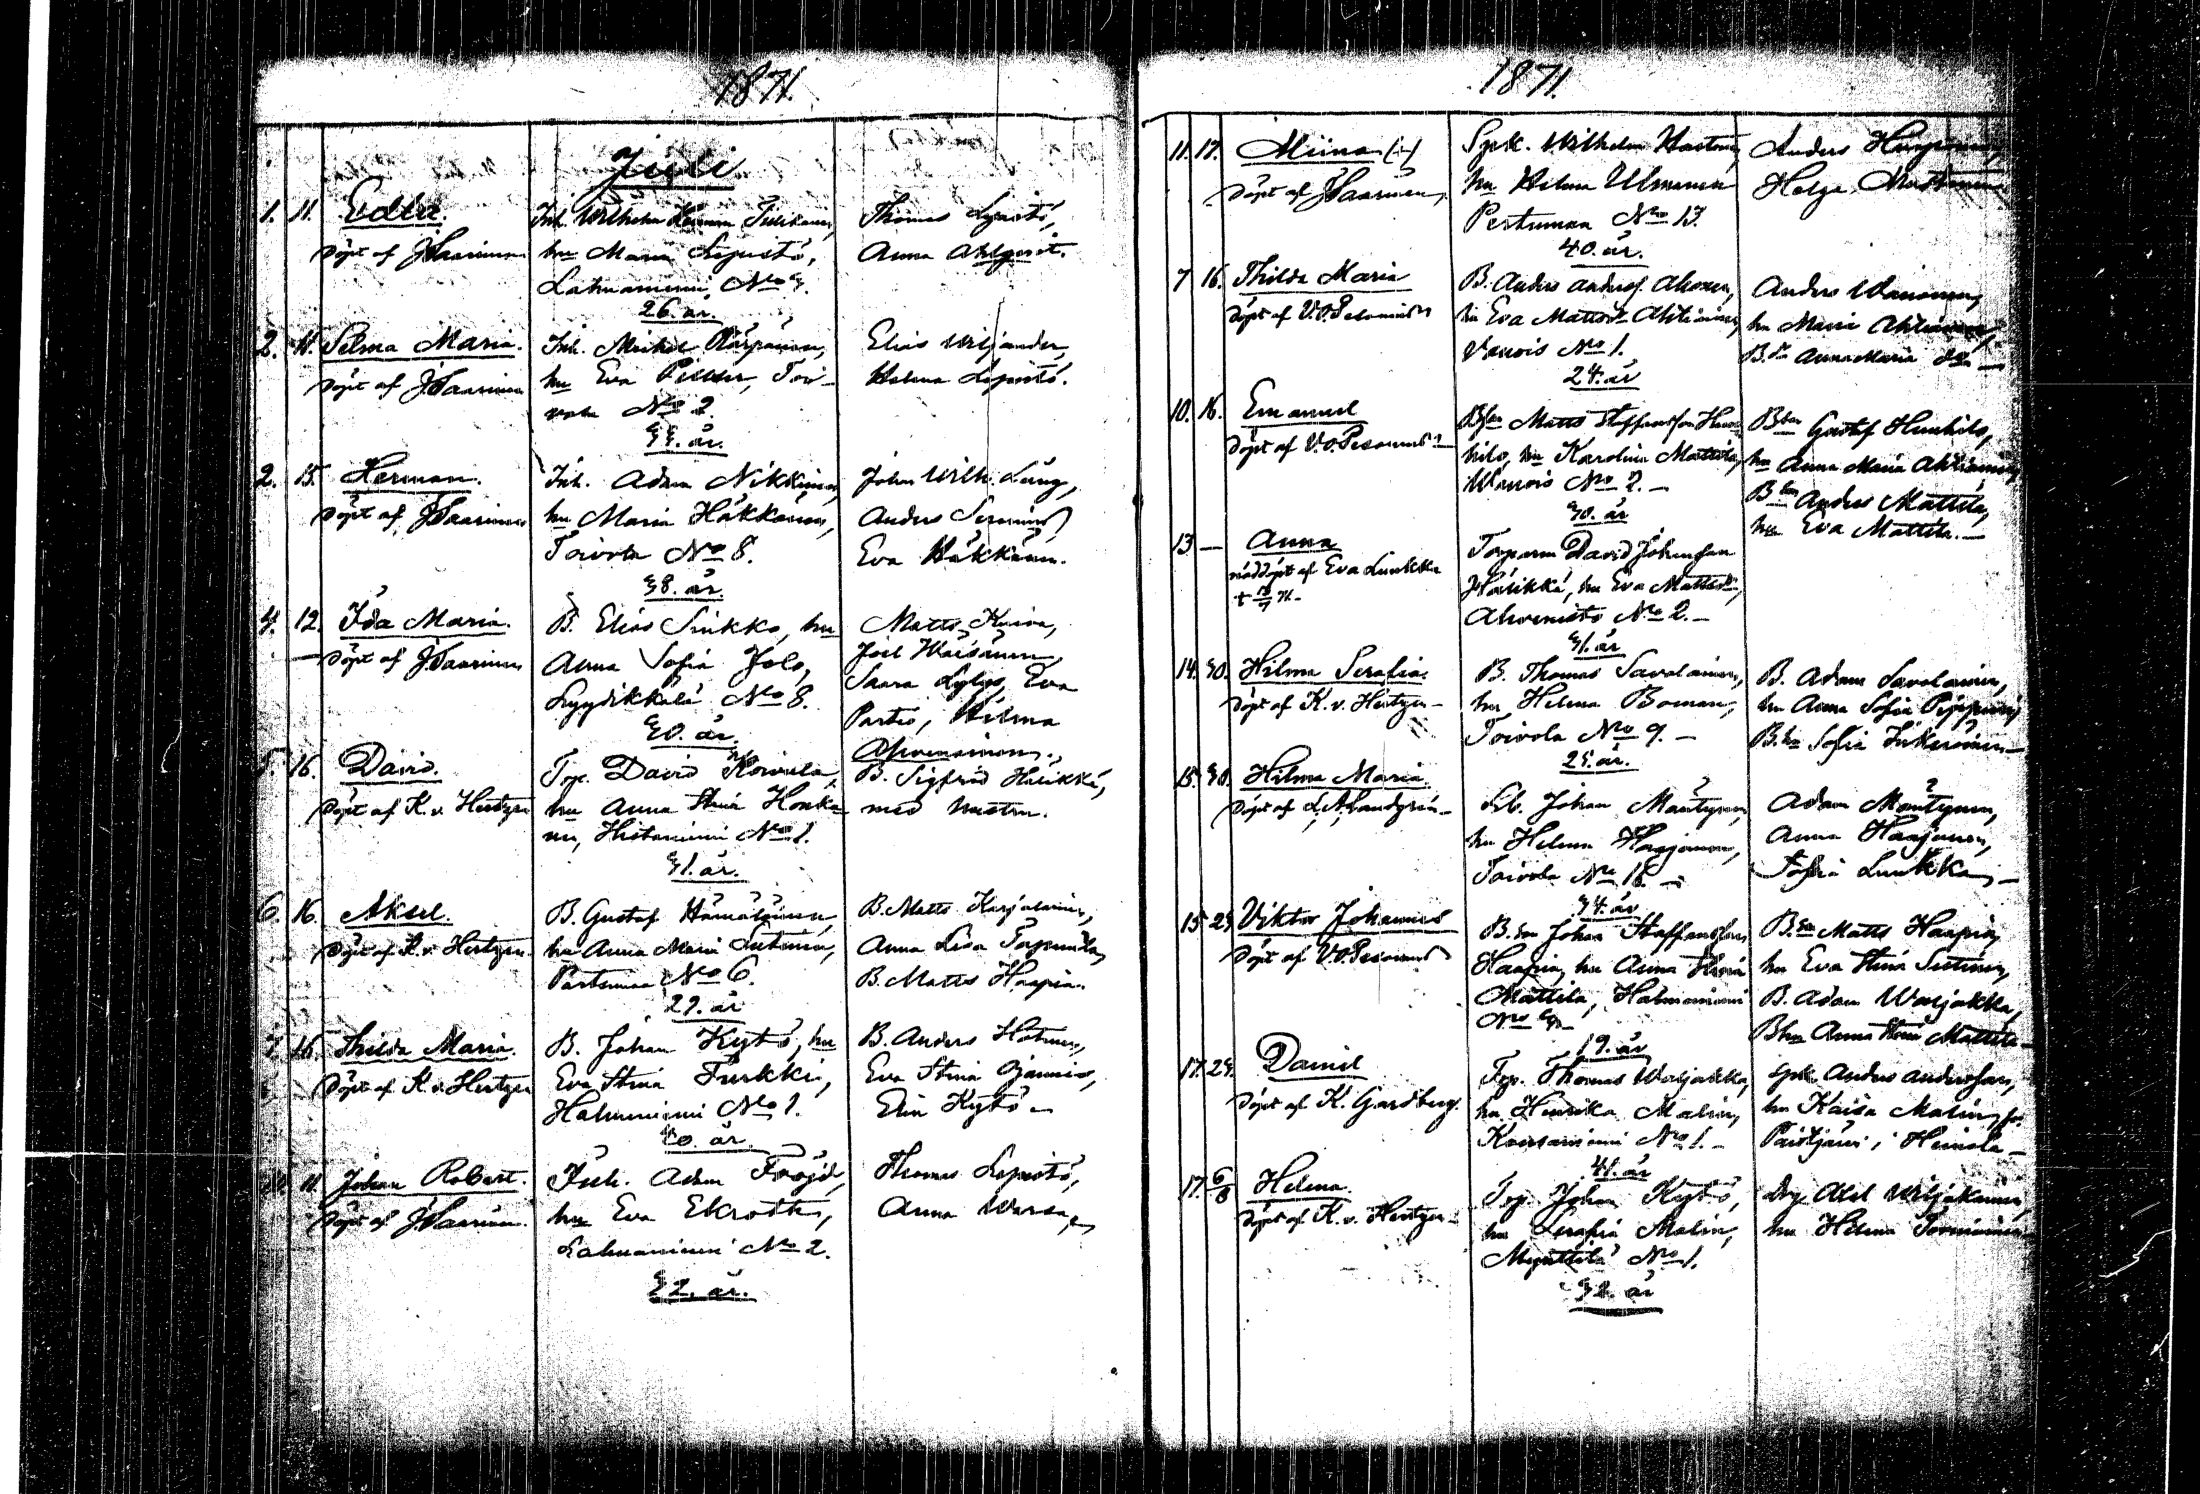 1871.
Juli
1. 11. Edla.
Döpt af J. Saarinen
Inh. Wilhelm
hu Maria Lepistö,
Lahnaniemi, No 3.
26. år.
Thomas Lepistö,
Anna Ahlqvist.
2. 11. Selma Maria.
Döpt af J. Saarinen
Inh. Mikel Kärpänen,
hu Eva Toi-
vola No 2.
33. år.
Elias Wiljander,
Helena Lepistö.
2. 15. Herman.
Döpt af J. Saarinen
Inh. Adam Nikkinen,
hu Maria Häkkänen,
Toivola No 8.
38. år.
Johan Wilh. Läng,
Anders
Eva Häkkänen.
4. 12. Ida Maria.
Döpt af J. Saarinen
B. Elias Sinkko, hu
Anna Sofia Jols,
Lyydikkälä No 8.
30. år.
Matts Koiva,
Joel Wäisänen,
Saara Lylys, Eva
Partio, Hilma
Ahvenainen.
5. 16. David.
Döpt af K. v. Hertzen
Trp. David Koivula,
hu Anna Stina Honka-
nen, Hietaniemi No 1.
31. år.
B. Sigfrid Halikka,
med hustru.
6. 16. Aksel.
Döpt af K. v. Hertzen
B. Gustaf Hämäläinen,
hu Anna Maria
Pertumaa No 6.
29. år
B. Matts Karjalainen,
Anna Lisa
B. Matts Haapia.
7. 16. Thilda Maria.
Döpt af K. v. Hertzen
B. Johan Kytö, hu
Eva Stina Turkki,
Halmeniemi No 1.
40. år
B. Anders
Eva Stina Ojanies,
Elin Kytö
11. Johan Robert.
Döpt af J. Saarinen.
Inh. Adam Fröjd,
hu Eva Ekroth,
Lahnaniemi No 2.
32. år.
Thomas Lepistö,
Anna
1871.
11. 17. Miina (+)
Döpt af J. Saarinen,
Spk. Wilhelm
hu Helena Ulmanen
Pertumaa No 13.
40. år.
Anders
Helga
7 16. Thilda Maria
Döpt af V. O. Pesonius
B. Anders Andersf. Ahonen,
hu Eva Mattsdr Ahtiainen,
Vanois No 1.
24. år
Anders Wanonen,
hu Maria Ahtiainen,
B.dr Anna Maria
10. 16. Emanuel
Döpt af V. O. Pesonius
Bsn Matts Staffansson Huu-
hilo, hu Karolina Mattila,
Wanois No 2.
30. år
Bsn Gustaf Huuhilo,
hu Anna Maria Ahtiainen,
Bsn Anders Mattila,
hu Eva Mattila.
13 — Anna
nöddöpt af Eva Luukka
Torparen David Johansson
Halikka, hu Eva Mattsdr,
Ahvenisto No 2.
31. år
14. 30. Hilma Serafia
Döpt af K. v. Hertzen
B. Thomas Savolainen,
hu Helena Boman,
Toivola No 9.
25. år.
B. Adam Savolainen,
hu Anna Sofia Pippuri,
B.hu Sofia Inkeroinen
15. 30. Hilma Maria.
Döpt af L. A. Sandgrén
Lb. Johan Mäntynen,
hu Helena Haajanen,
Toivola No 16.
34. år
Adam Mäntynen,
Anna Haajanen,
Sofia Luukka
15. 23. Viktor Johannes
Döpt af V. O. Pesonius
B.sn Johan Staffansson
Haapia, hu Anna Stina
Mattila, Halmeniemi
No 3.
19. år
B.sn Matts Haapia,
hu Eva Stina Sutinen,
B. Adam Warjakka,
Bhu Anna Stina Mattila
17. 23. Daniel
Döpt af K. Gardberg.
Trp. Thomas Warjakka,
hu Henrika Malin,
Kuorsaniemi No 1.
41. år
Spk. Anders Andersson,
hu Kaisa Malin, fr.
Päistjärvi, i Heinola
17. 6/8 Helena.
Döpt af K. v. Hertzen
Trp. Johan Kytö,
hu Serafia Malin,
Mynttilä No 1.
32. år
Drg. Abel Wiljakainen,
hu Helena Torniainen